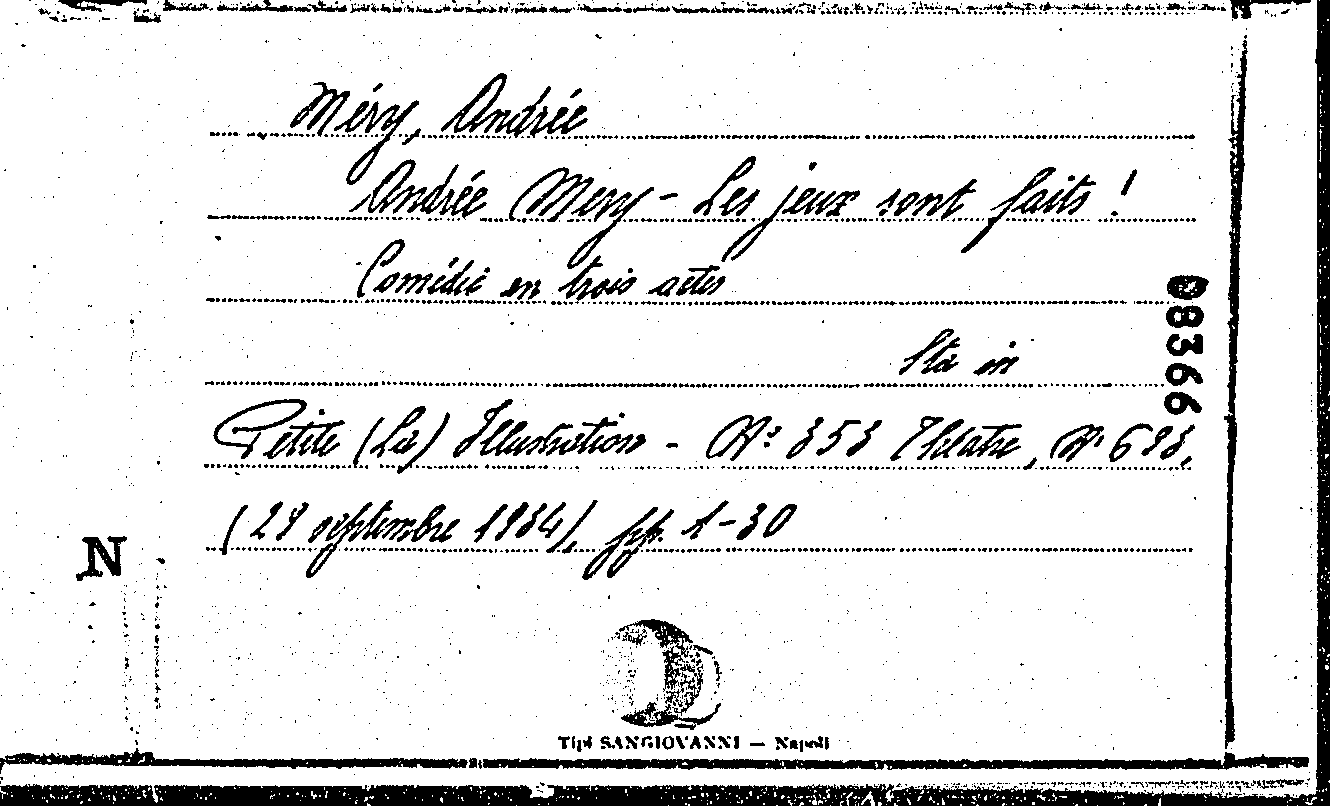 Méry, Andrée
Andrée Mery - Les jeux sont faits !
Comédie en trois actes
Sta in
Petite (La) Illustration - Nº 353 Théatre, Nº 693,
(29 septembre 1934), pp. 1-30
08366
N
Tipi SANGIOVANNI — Napoli